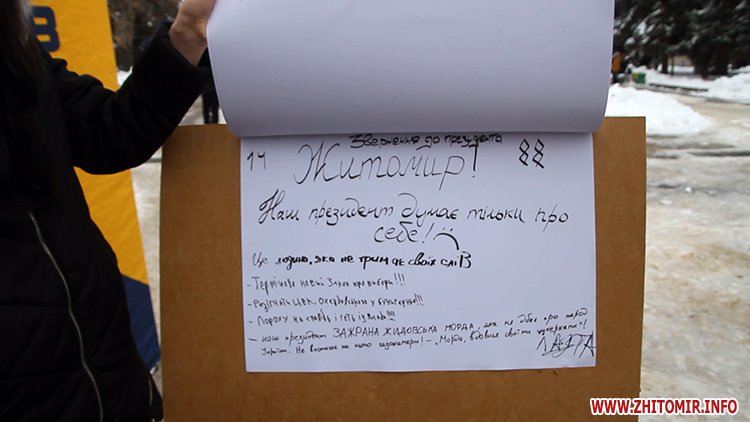 В
Звернення до президента
14 Житомир! 88
Наш президент думає тільки про
себе!
Це людина, яка не тримає своїх слів
- Терміново новий Закон про вибори!!!
- Розігнать ЦВК. Охендовського у буцигарню!!!
- Пороху на ставдь і геть із Влади!!!
- наш президент ЗАЖРАНА ЖИДОВСЬКА МОРДА, яка не дбає про народ
України. Не вистачає на нього газокамери! – „Морда, вдавися своїми цукерками"!
WWW.ZHITOMIR.INFO